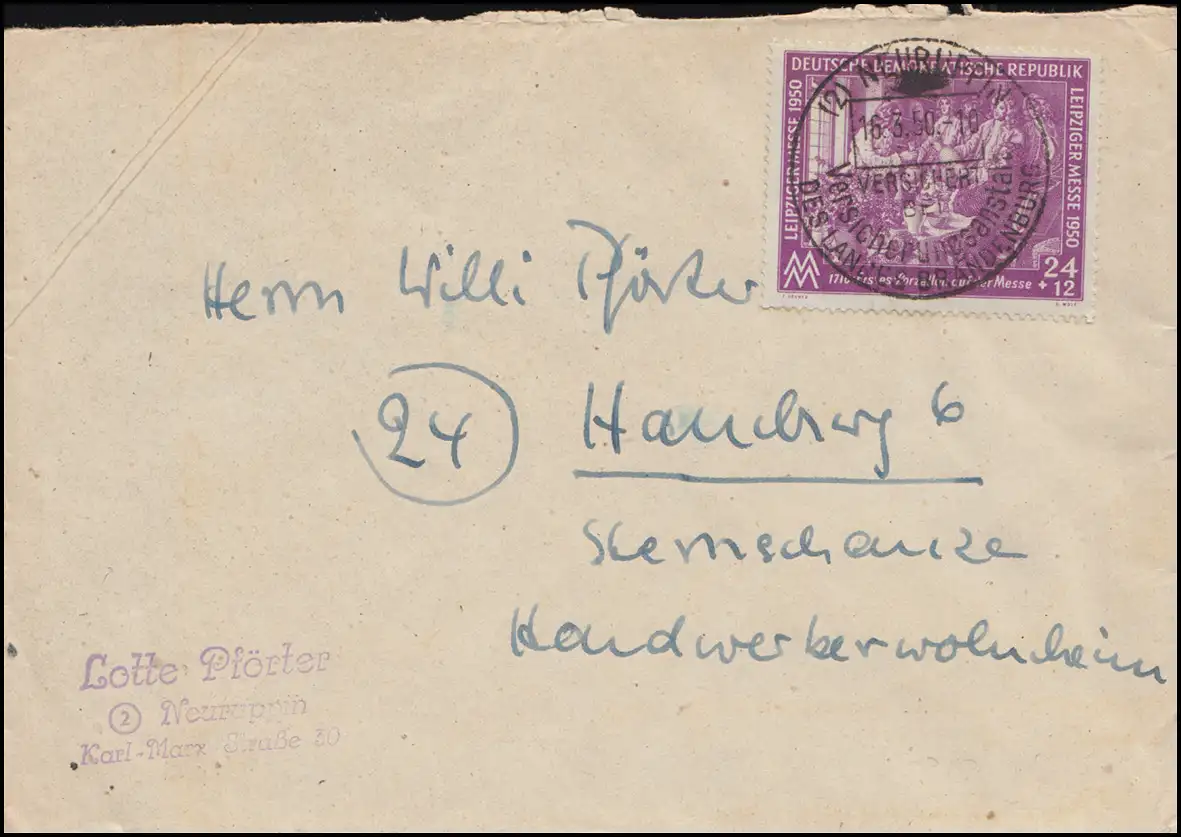 DEUTSCHE DEMOKRATISCHE REPUBLIK
LEIPZIGER MESSE 1950
LEIPZIGER MESSE 1950
24
+ 12
1710 erstes Porzellan auf der Messe
(2) NEURUPPIN
16.3.50.-18
VERSICHERT
Versicherungsanstalt
DES LANDES BRANDENBURG
Herrn Willi Pförter
24
Hamburg 6
Sternschanze
Handwerkerwohnheim
Lotte Pförter
2 Neuruppin
Karl-Marx Straße 30